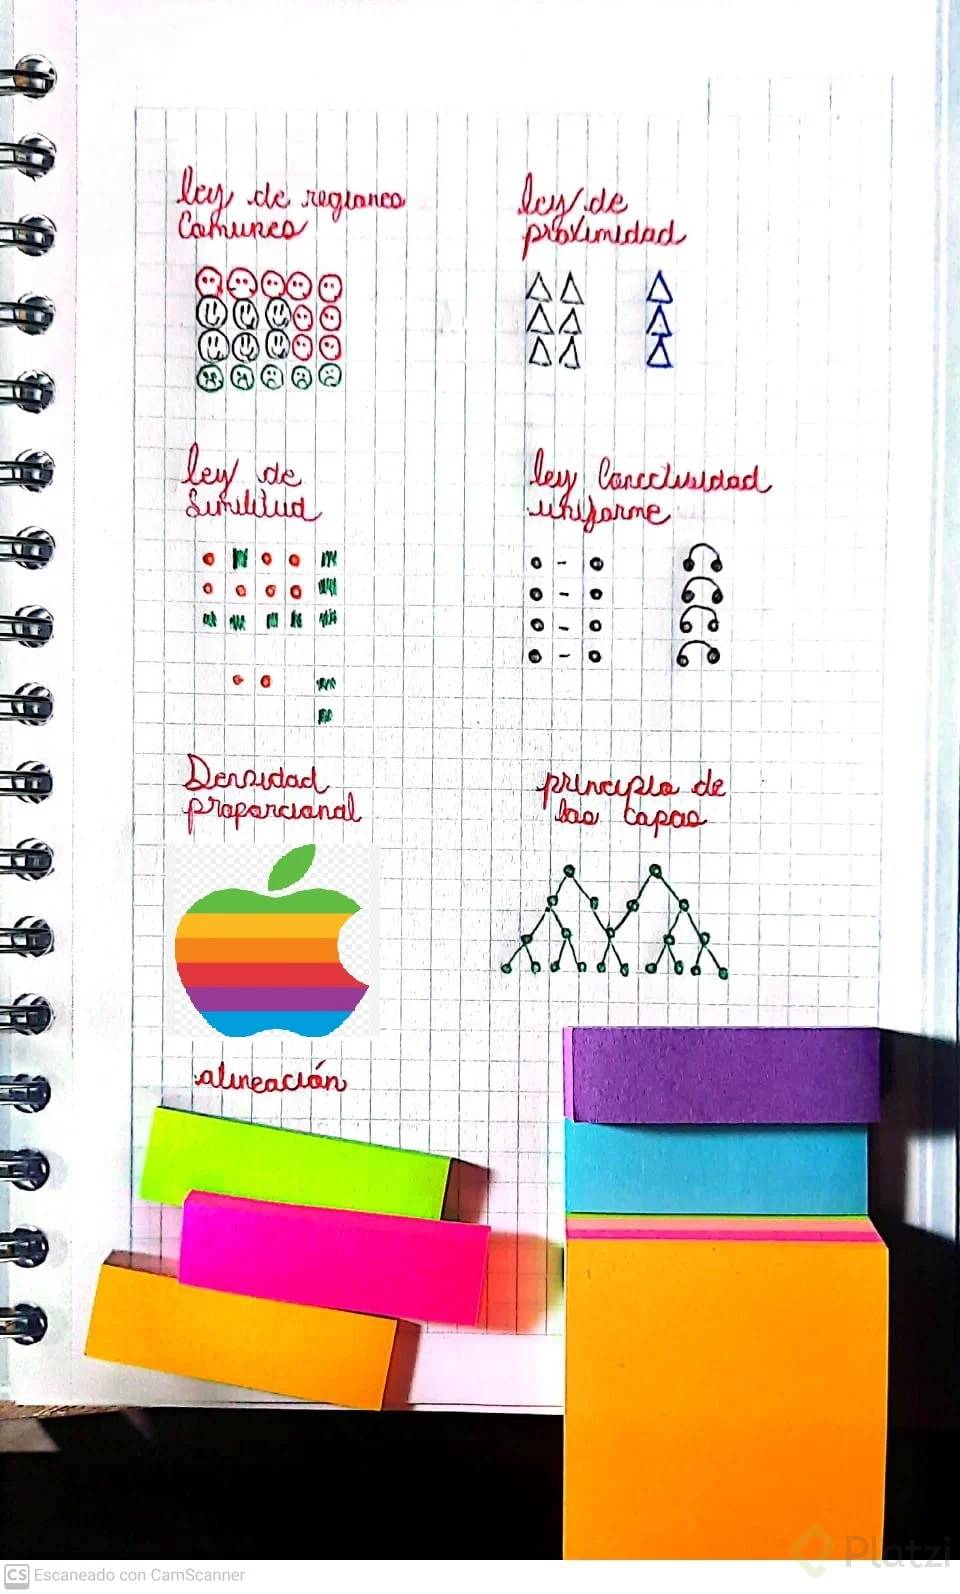 ley de regiones
Comunes
ley de
proximidad
ley de
Similitud
ley Conectividad
uniforme
Densidad
proporcional
principio de
las capas
alineación
Platzi
CS Escaneado con CamScanner